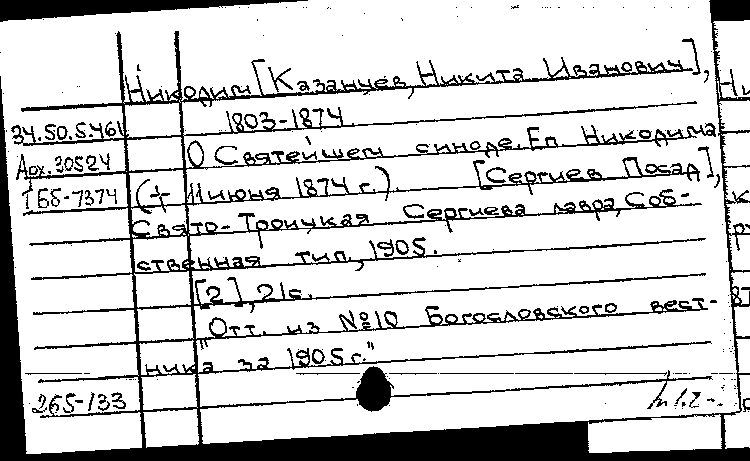 Никодим [Казанцев, Никита Иванович],
1803-1874.
34.50.5.461
О Святейшем синоде. Еп. Никодима
Арх. 30524
(† 11 июня 1874 г.). [Сергиев Посад],
ТБ5-7374
Свято-Троицкая Сергиева лавра, Соб-
ственная тип., 1905.
[2], 21 с.
"Отт. из №10 Богословского вест-
ника за 1905 г."
265-133